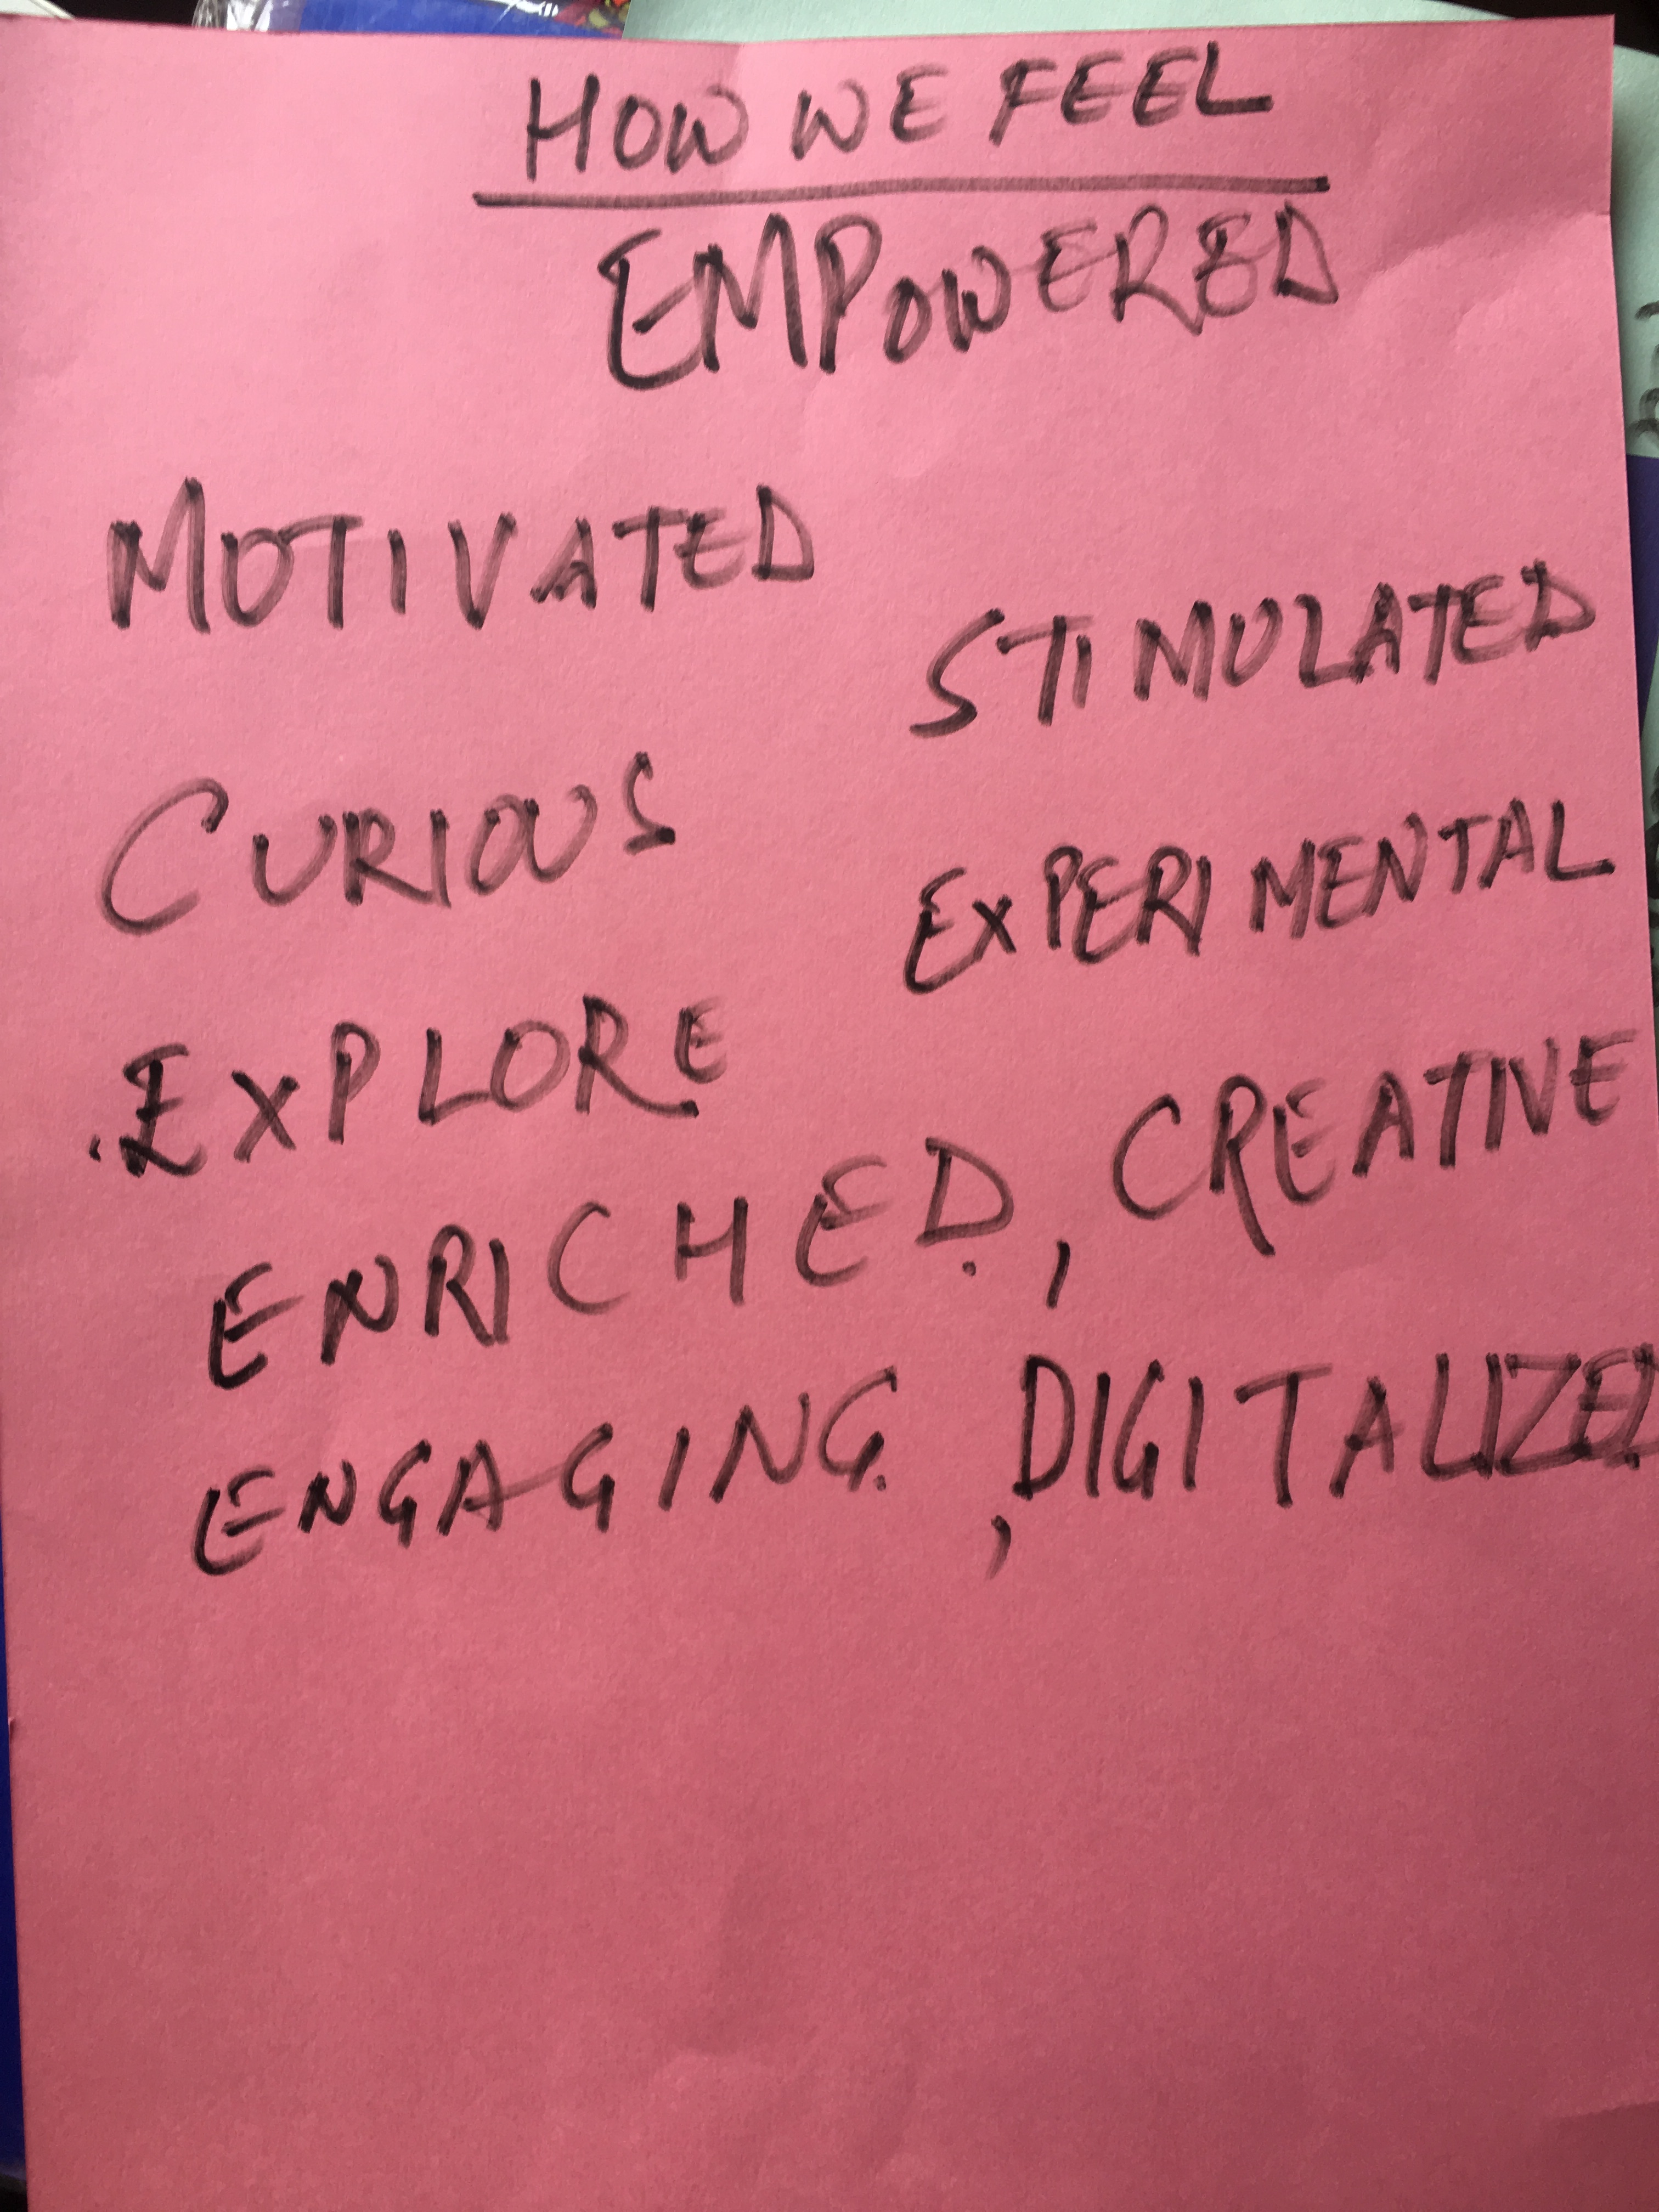 HOW WE FEEL
EMPOWERED
MOTIVATED
STIMULATED
CURIOUS
EXPERIMENTAL
.EXPLORE
ENRICHED., CREATIVE
ENGAGING. , DIGITALIZED.